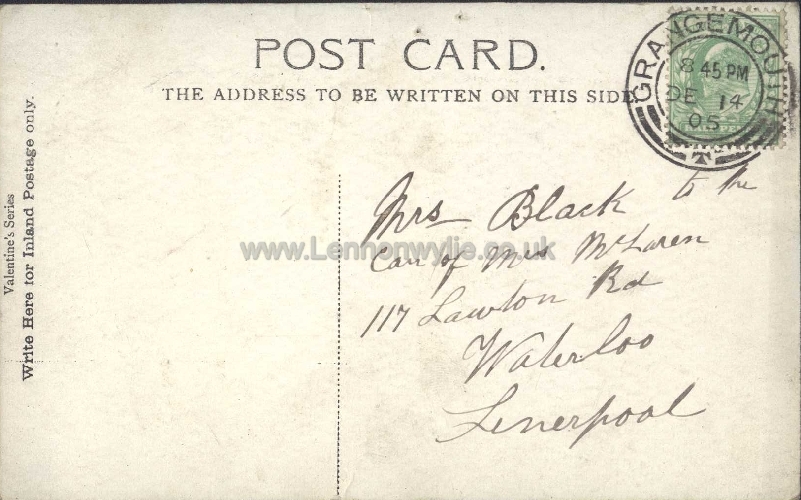 POST CARD.
THE ADDRESS TO BE WRITTEN ON THIS SIDE
GRANGEMOUTH
8 45 PM
DE 14
05
Valentine's Series
Write Here for Inland Postage only.
Mrs Black to the
Care of Mrs McLaren
117 Lawton Rd
Waterloo
Liverpool
www.Lennonwylie.co.uk